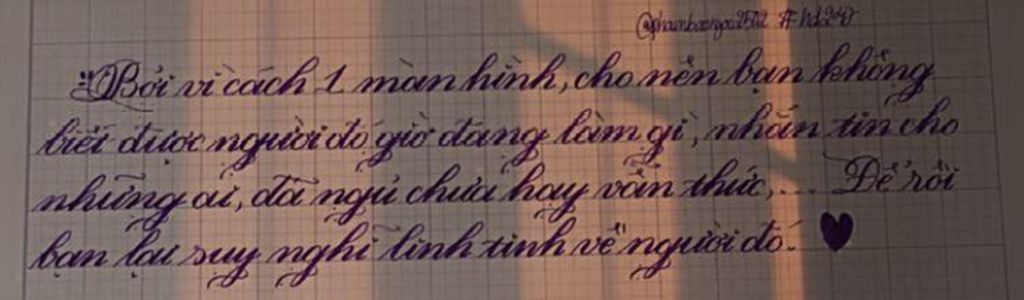 #hd247
"Bởi vì cách 1 màn hình, cho nên bạn không
biết được người đó giờ đang làm gì, nhắn tin cho
những ai, đã ngủ chưa hay vẫn thức,... Để rồi
bạn lại suy nghĩ linh tinh về người đó.